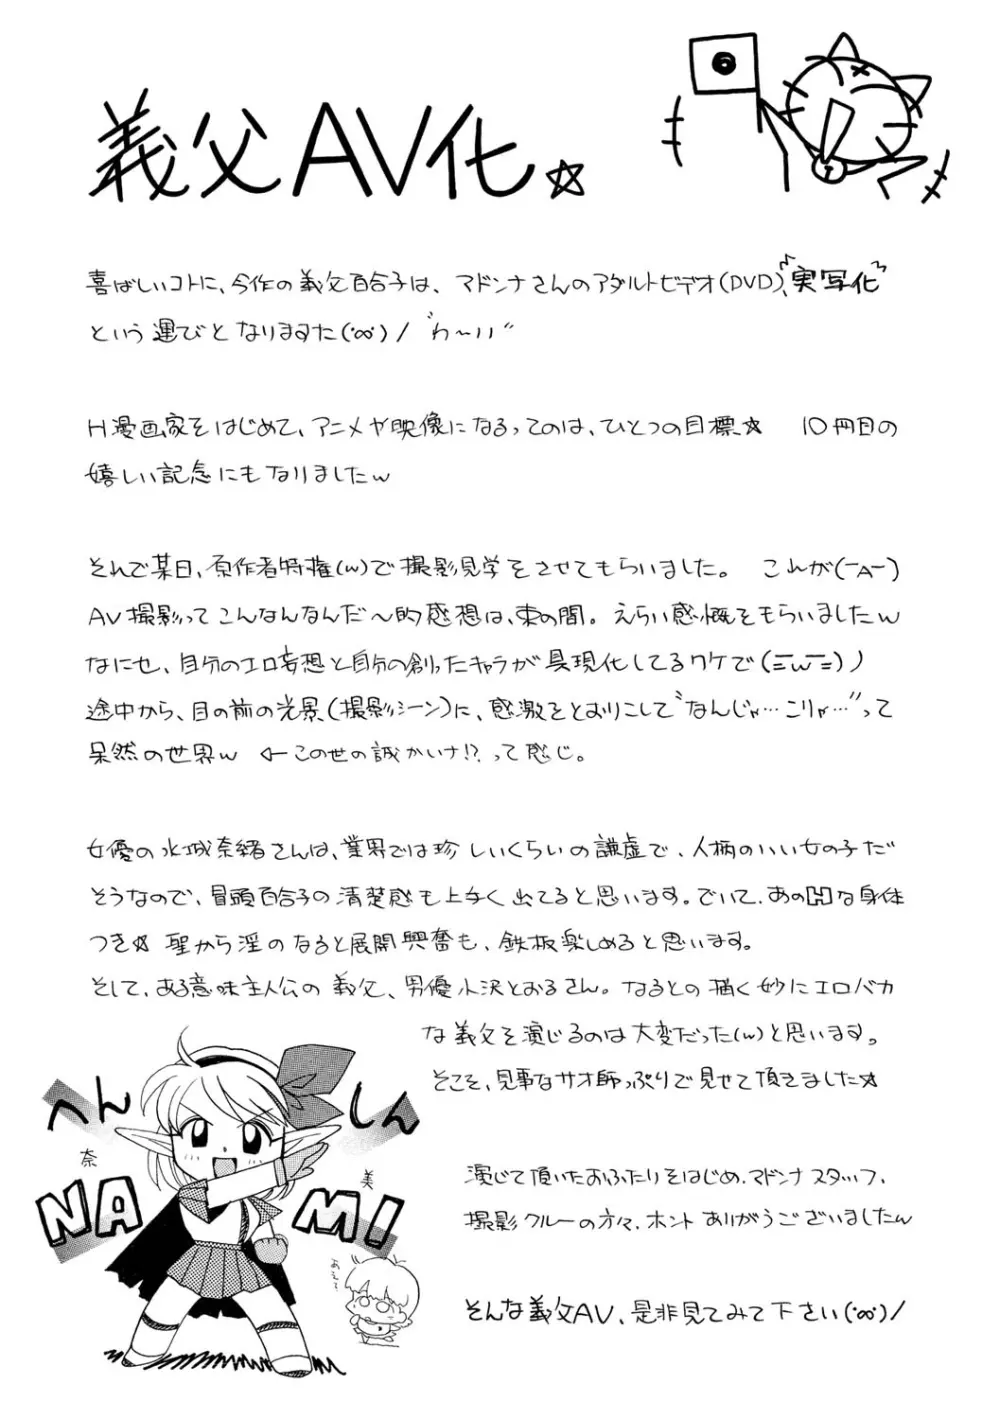 義父AV化☆
喜ばしいコトに、今作の義父百合子は、マドンナさんのアダルトビデオ(DVD)、実写化
という運びとなりますた(°∞°)/ "わ〜いい"
H漫画家をはじめて、アニメや映像になるってのは、ひとつの目標☆ 10冊目の
嬉しい記念にもなりましたw
それで某日、原作者特権(w)で撮影見学をさせてもらいました。 これが(ーAー)
AV撮影ってこんなんなんだ〜的感想は、束の間。えらい感慨をもらいましたw
なにせ、自分のエロ妄想と自分の創ったキャラが具現化してるワケで(ΞwΞ)ノ
途中から、目の前の光景(撮影シーン)に、感激をとおりこして"なんじゃ…こりゃ…"って
呆然の世界w ←この世の誠かいナ!?って感じ。
女優の水城奈緒さんは、業界では珍しいくらいの謙虚で、人柄のいい女の子だ
そうなので、冒頭百合子の清楚感も上手く出てると思います。でいて、あのHな身体
つき☆ 聖から淫のなると展開興奮も、鉄板楽しめると思います。
そして、ある意味主人公の義父、男優小沢とおるさん。なるとの描く妙にエロバカ
な義父を演じるのは大変だった(w)と思います。
そこそ、見事なサオ師っぷりで見せて頂きました☆
へん しん
奈 美
NA MI
あえて
演じて頂いたおふたりをはじめ、マドンナスタッフ、
撮影クルーの方々、ホントありがうございましたw
そんな義父AV、是非見てみて下さい(°∞°)/